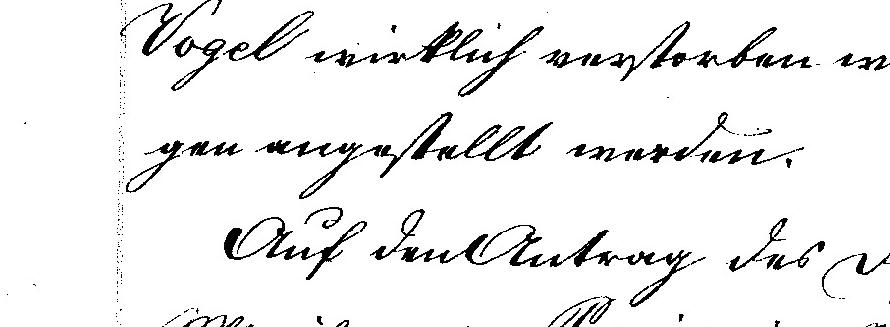 Vogel wirklich verstorben
gen angestellt werden.
Auf den Antrag des